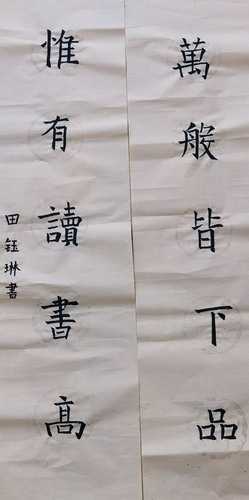 萬般皆下品
惟有讀書高
田鈺琳書